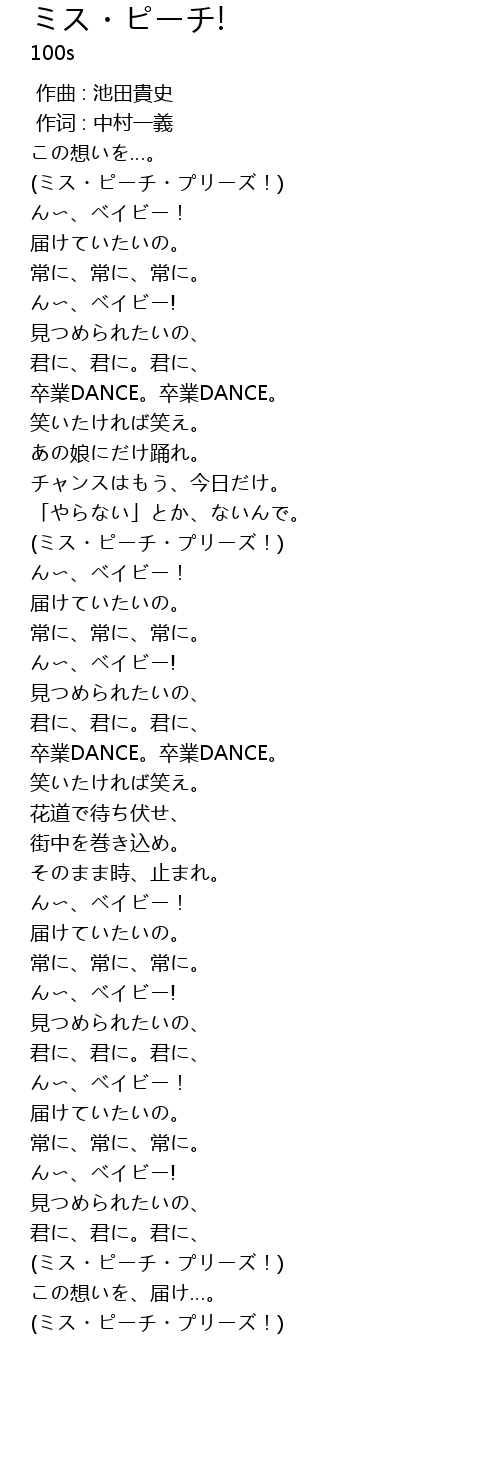 ミス・ピーチ!
100s
作曲 : 池田貴史
作词 : 中村一義
この想いを…。
(ミス・ピーチ・プリーズ！)
ん〜、ベイビー！
届けていたいの。
常に、常に、常に。
ん〜、ベイビー!
見つめられたいの、
君に、君に。君に、
卒業DANCE。卒業DANCE。
笑いたければ笑え。
あの娘にだけ踊れ。
チャンスはもう、今日だけ。
「やらない」とか、ないんで。
(ミス・ピーチ・プリーズ！)
ん〜、ベイビー！
届けていたいの。
常に、常に、常に。
ん〜、ベイビー!
見つめられたいの、
君に、君に。君に、
卒業DANCE。卒業DANCE。
笑いたければ笑え。
花道で待ち伏せ、
街中を巻き込め。
そのまま時、止まれ。
ん〜、ベイビー！
届けていたいの。
常に、常に、常に。
ん〜、ベイビー!
見つめられたいの、
君に、君に。君に、
ん〜、ベイビー！
届けていたいの。
常に、常に、常に。
ん〜、ベイビー!
見つめられたいの、
君に、君に。君に、
(ミス・ピーチ・プリーズ！)
この想いを、届け…。
(ミス・ピーチ・プリーズ！)